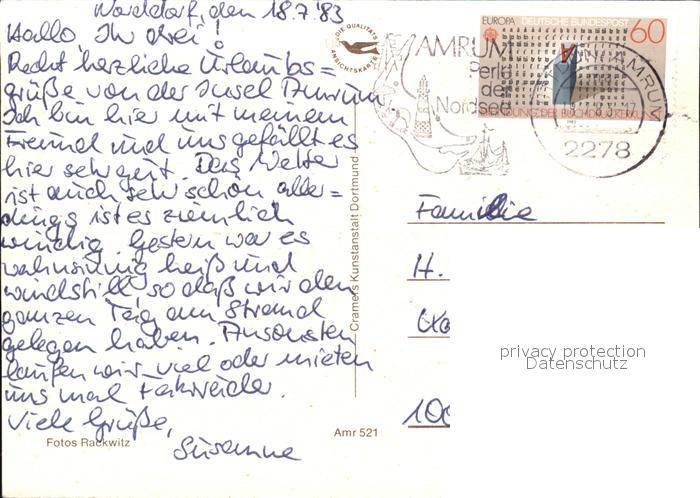 Norddorf, den 18.7.83
Hallo Ihr drei!
Recht herzliche Urlaubs=
grüße von der Insel Amrum.
Ich bin hier mit meinem
Freund und uns gefällt es
hier sehr gut. Das Wetter
ist auch sehr schön aller=
dings ist es ziemlich
windig. Gestern war es
wahnsinnig heiß und
windstill, so daß wir den
ganzen Tag am Strand
gelegen haben. Ansonsten
laufen wir viel oder mieten
uns mal Fahrräder.
Viele Grüße,
Susanne
Fotos Rackwitz
Amr 521
Cramers Kunstanstalt Dortmund
DIE QUALITÄTS
ANSICHTSKARTE
EUROPA DEUTSCHE BUNDESPOST 60
1983
AMRUM
Perle
der
Nordsee
AMRUM
2278
Familie
H.
privacy protection
Datenschutz